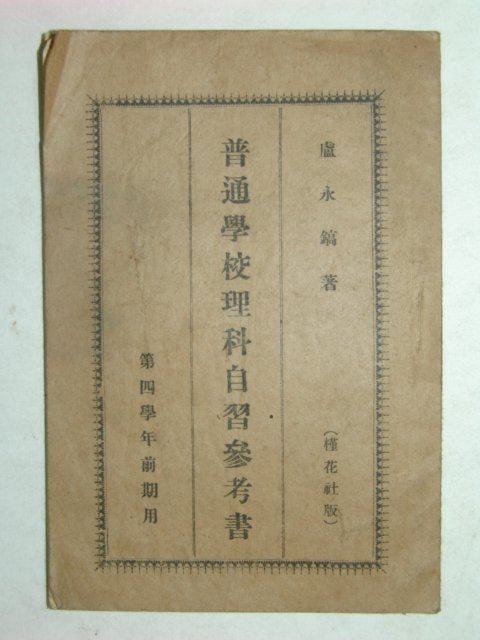 盧永鎬著
(槿花社版)
普通學校理科自習參考書
第四學年前期用